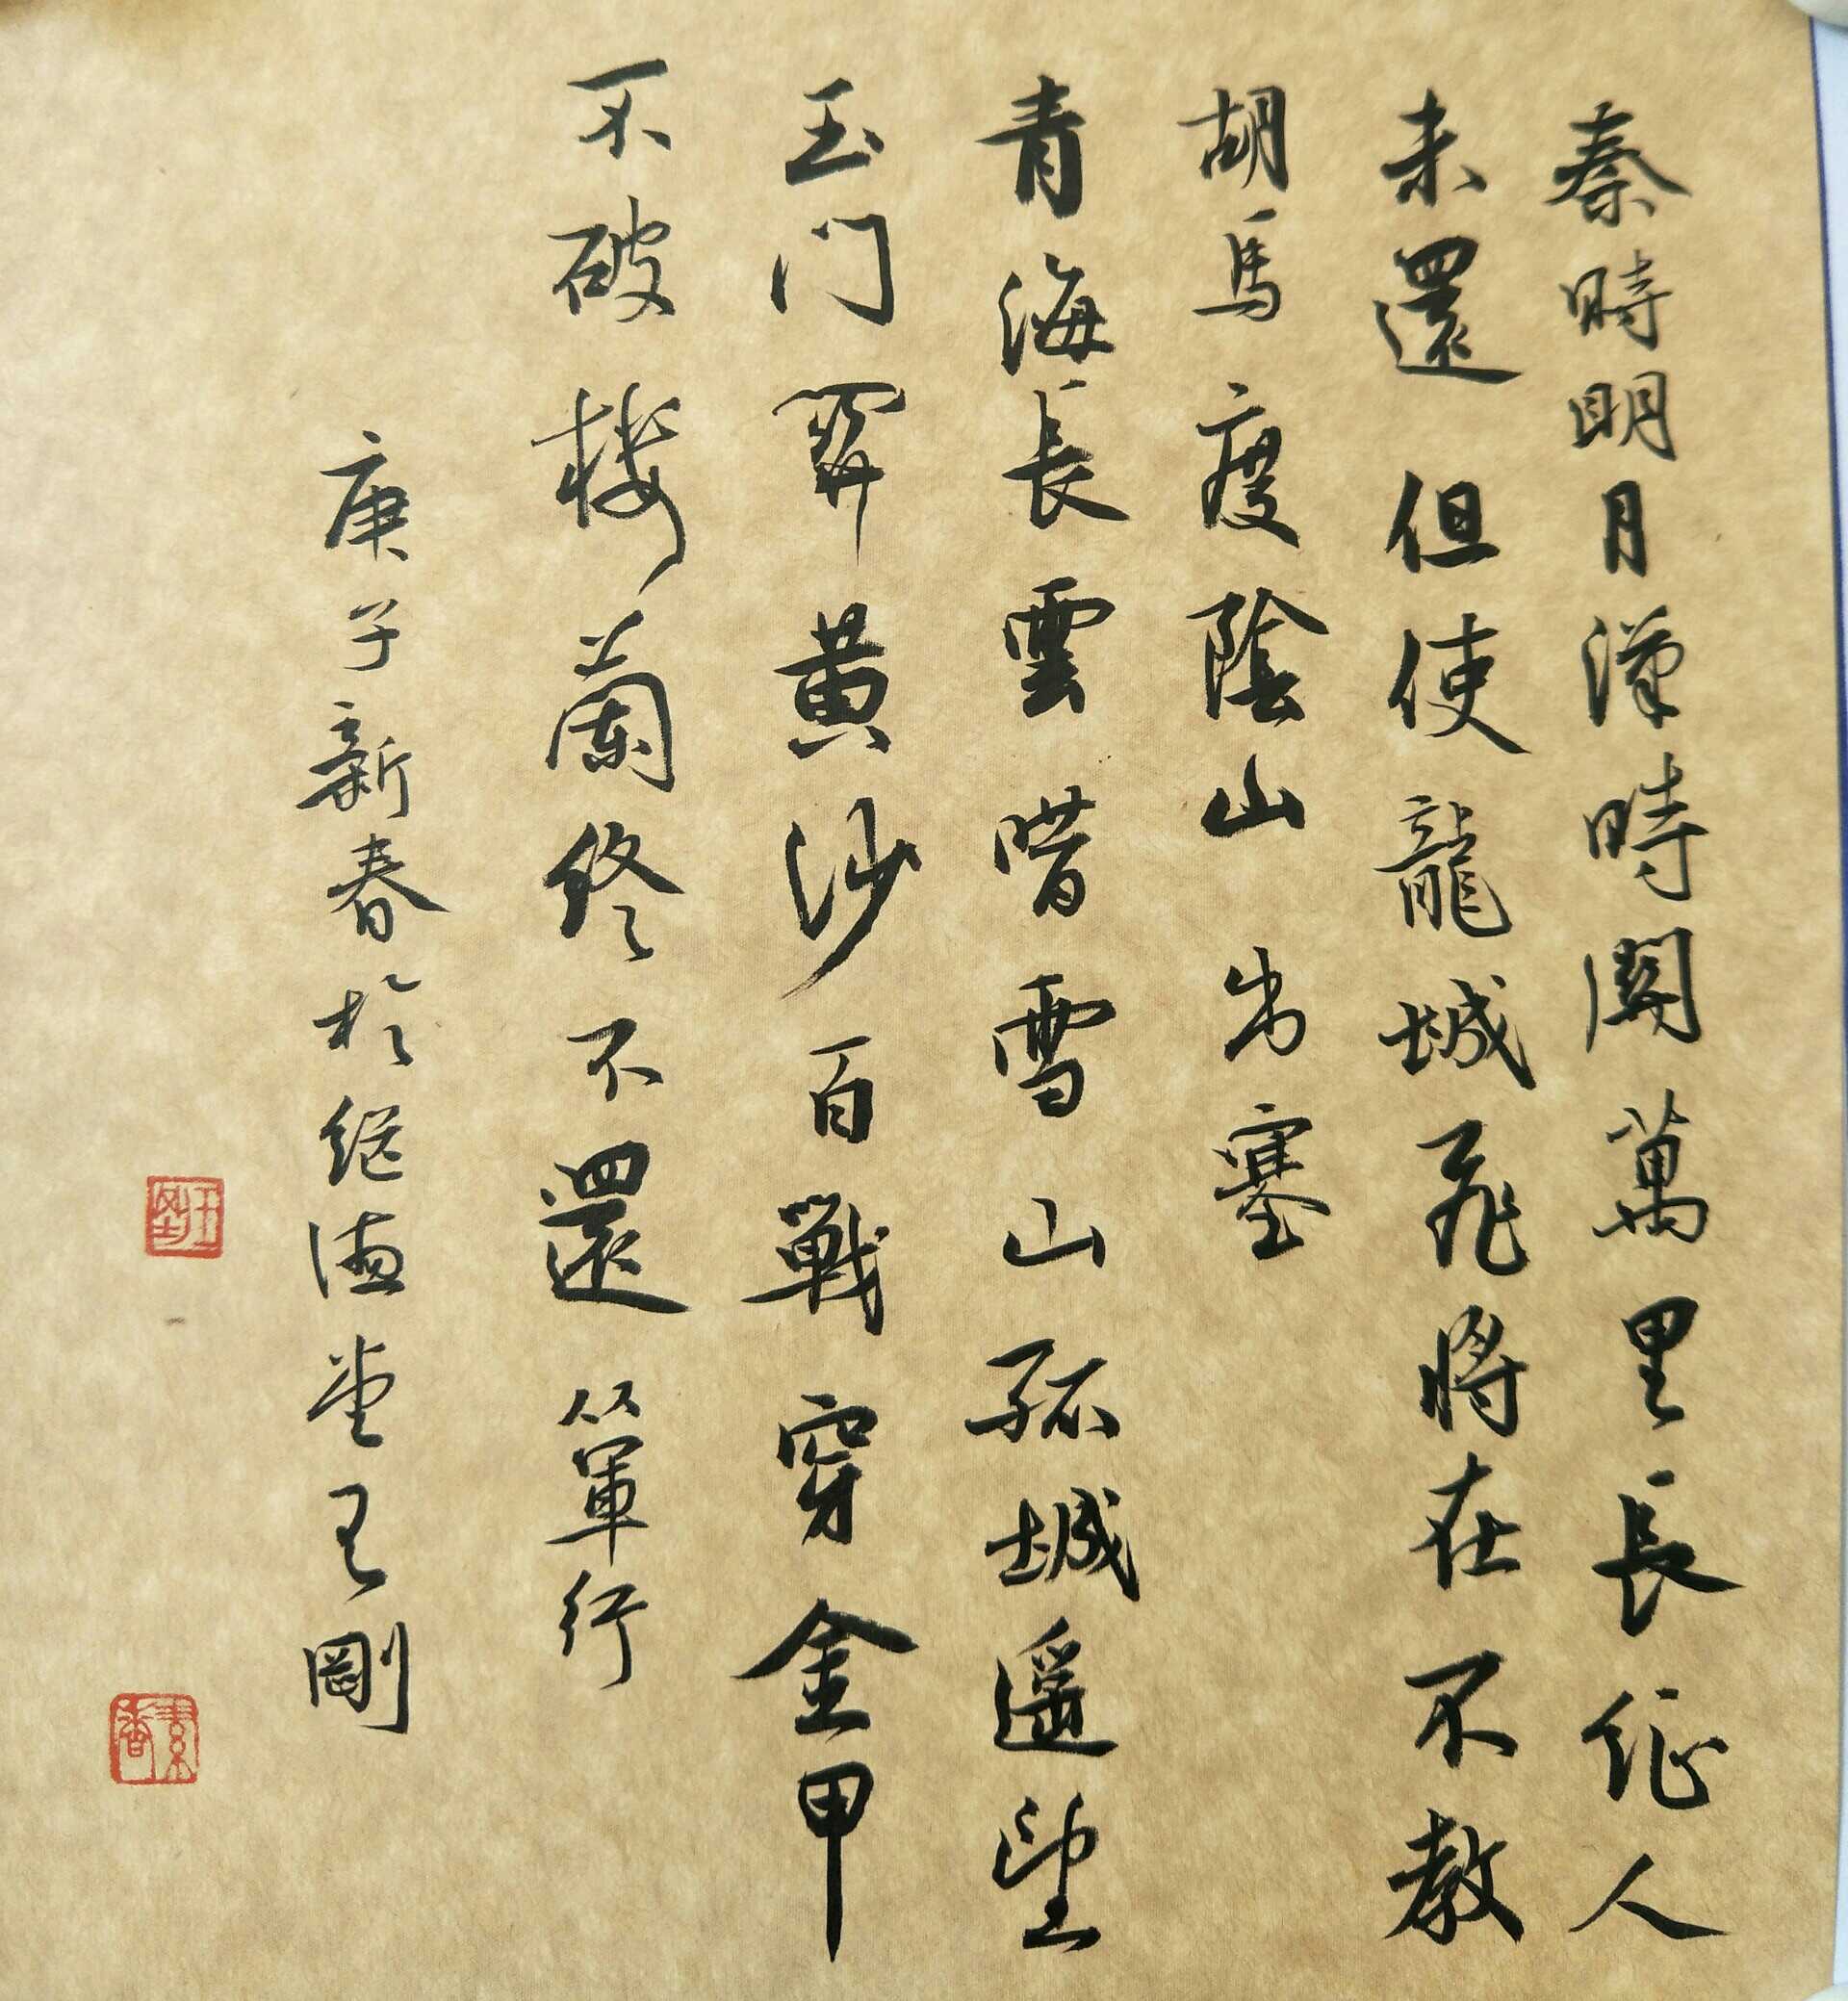 秦時明月漢時關萬里長征人
未還但使龍城飛將在不教
胡馬度陰山 出塞
青海長雲暗雪山孤城遥望
玉门關黄沙百戰穿金甲
不破楼蘭終不還 从軍行
庚子新春於继德堂王剛
王剛